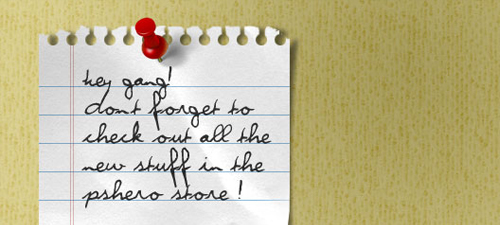 hey gang!
dont forget to
check out all the
new stuff in the
pshero store!